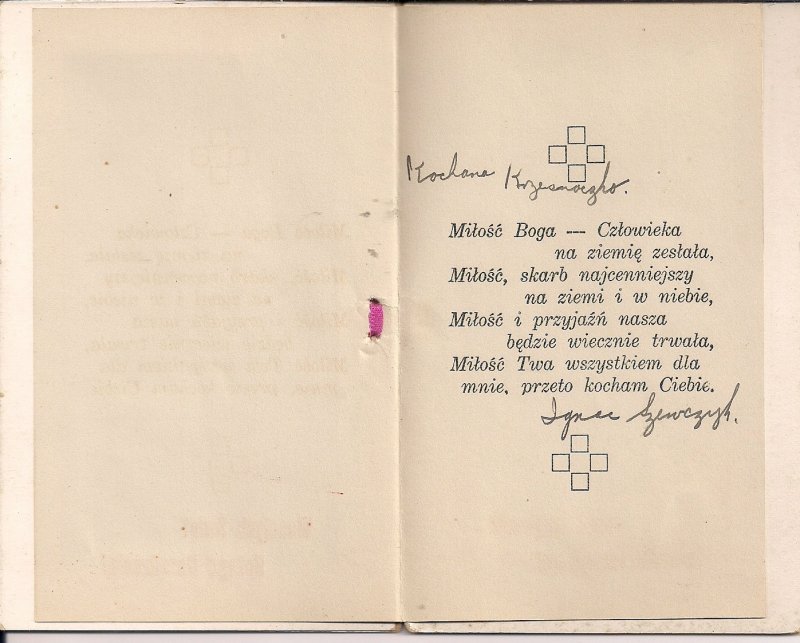 Kochana Krzesnaczko.
Miłość Boga --- Człowieka
na ziemię zesłała,
Miłość, skarb najcenniejszy
na ziemi i w niebie,
Miłość i przyjaźń nasza
będzie wiecznie trwała,
Miłość Twa wszystkiem dla
mnie, przeto kocham Ciebie.
Ignac Szewczyk.